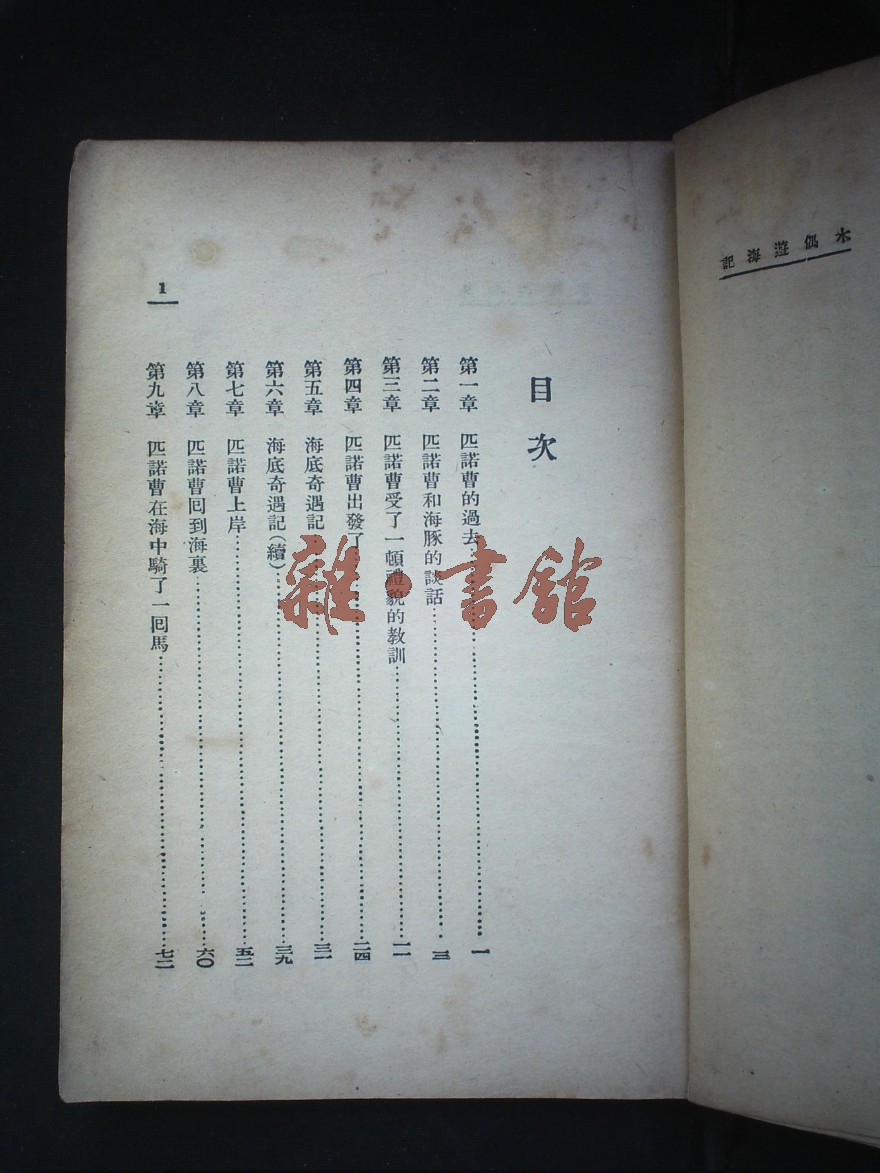 木偶遊海記
目次
第一章 匹諾曹的過去……一
第二章 匹諾曹和海豚的談話……三
第三章 匹諾曹受了一頓禮貌的教訓……一一
第四章 匹諾曹出發了……二四
第五章 海底奇遇記……三一
第六章 海底奇遇記(續)……三九
第七章 匹諾曹上岸……五二
第八章 匹諾曹囘到海裏……六〇
第九章 匹諾曹在海中騎了一囘馬……七二
1
雜·書館